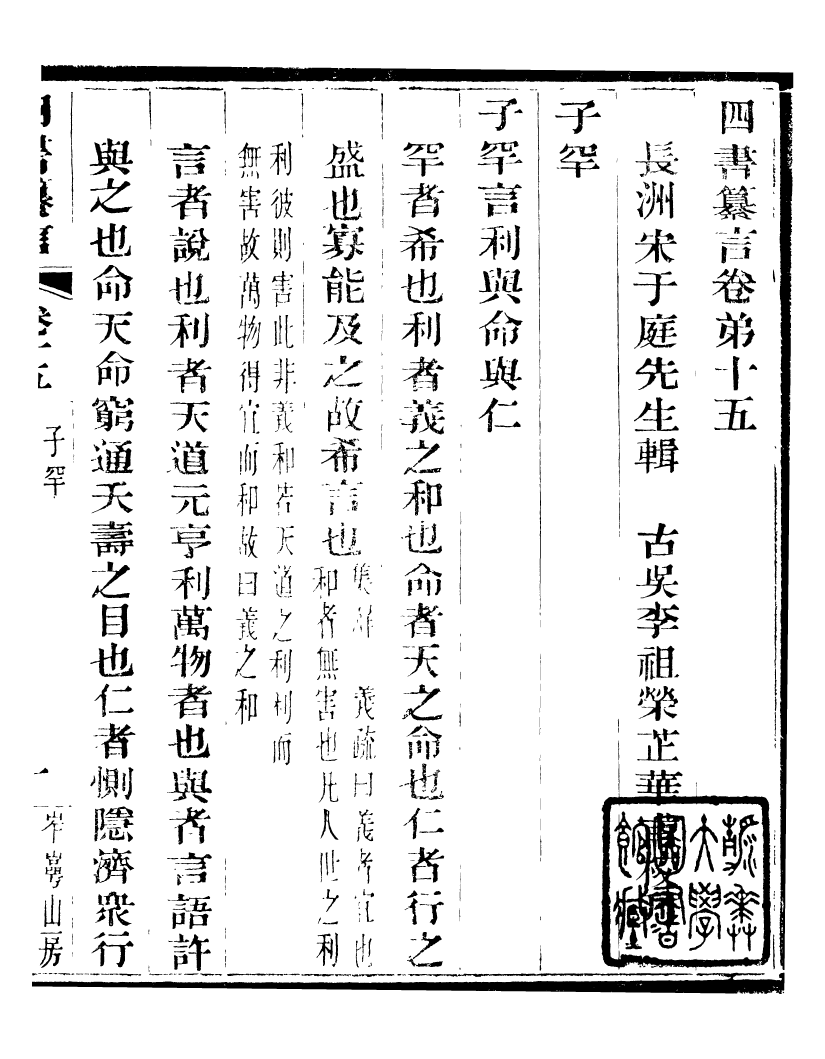 四書纂言卷弟十五
長洲宋于庭先生輯　古吳李祖榮芷華
子罕
子罕言利與命與仁
罕者希也利者義之和也命者天之命也仁者行之
盛也寡能及之故希言也集解　義疏曰義者宜也
和者無害也凡人世之利
利彼則害此非義和若天道之利利而
無害故萬物得宜而和故曰義之和
言者說也利者天道元亨利萬物者也與者言語許
與之也命天命窮通夭壽之目也仁者惻隱濟衆行
四書纂言　卷十五　子罕　一　岝㟧山房